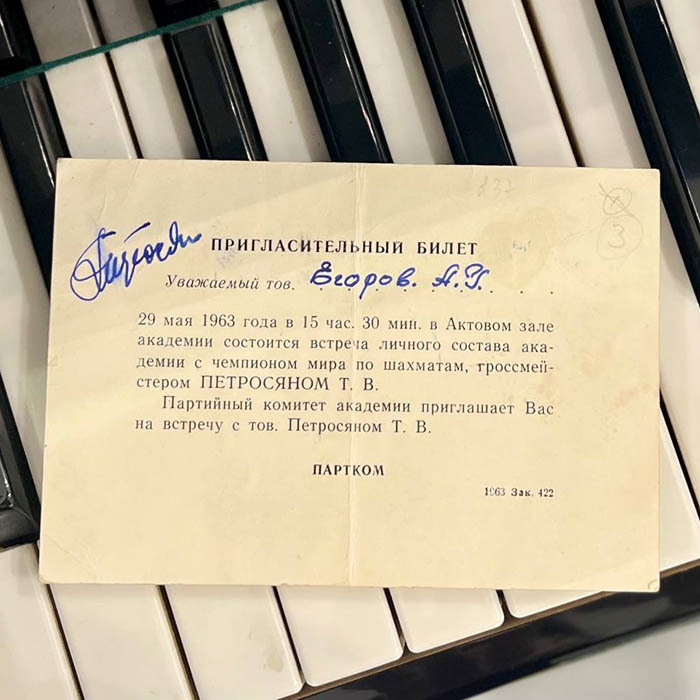 232
3
Петросян
ПРИГЛАСИТЕЛЬНЫЙ БИЛЕТ
Уважаемый тов. Егоров. А.Г.
29 мая 1963 года в 15 час. 30 мин. в Актовом зале
академии состоится встреча личного состава ака-
демии с чемпионом мира по шахматам, гроссмей-
стером ПЕТРОСЯНОМ Т. В.
Партийный комитет академии приглашает Вас
на встречу с тов. Петросяном Т. В.
ПАРТКОМ
1963 Зак. 422